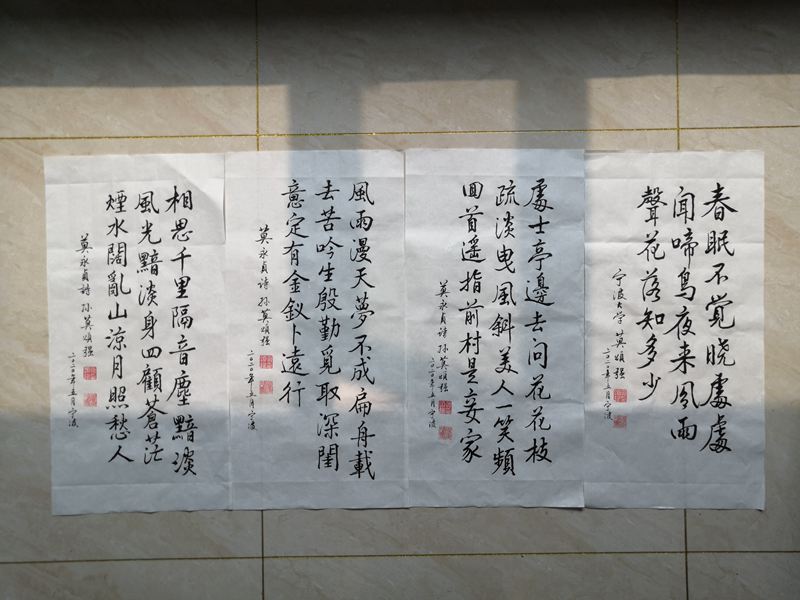 春眠不觉晓處處
闻啼鸟夜来风雨
聲花落知多少
宁波大学 莫順强
處士亭邊去问花花枝
疏淡曳風斜美人一笑頻
回首遥指前村是妾家
莫永貞诗 孫莫順强
二〇二〇年五月宁波
風雨漫天夢不成扁舟載
去苦吟生殷勤覓取深閨
意定有金釵卜遠行
莫永貞诗 孫莫順强
二〇二〇年五月宁波
相思千里隔音塵黯淡
風光黯淡身四顧蒼茫
煙水闊亂山凉月照愁人
莫永貞诗 孫莫順强
二〇二〇年五月宁波